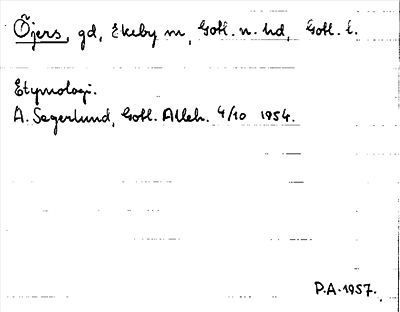 Öjers, gd, Ekeby sn, Gotl. n. hd, Gotl. l.
Etymologi.
A. Segerlund, Gotl. Alleh. 4/10 1954.
P.A. 1957.